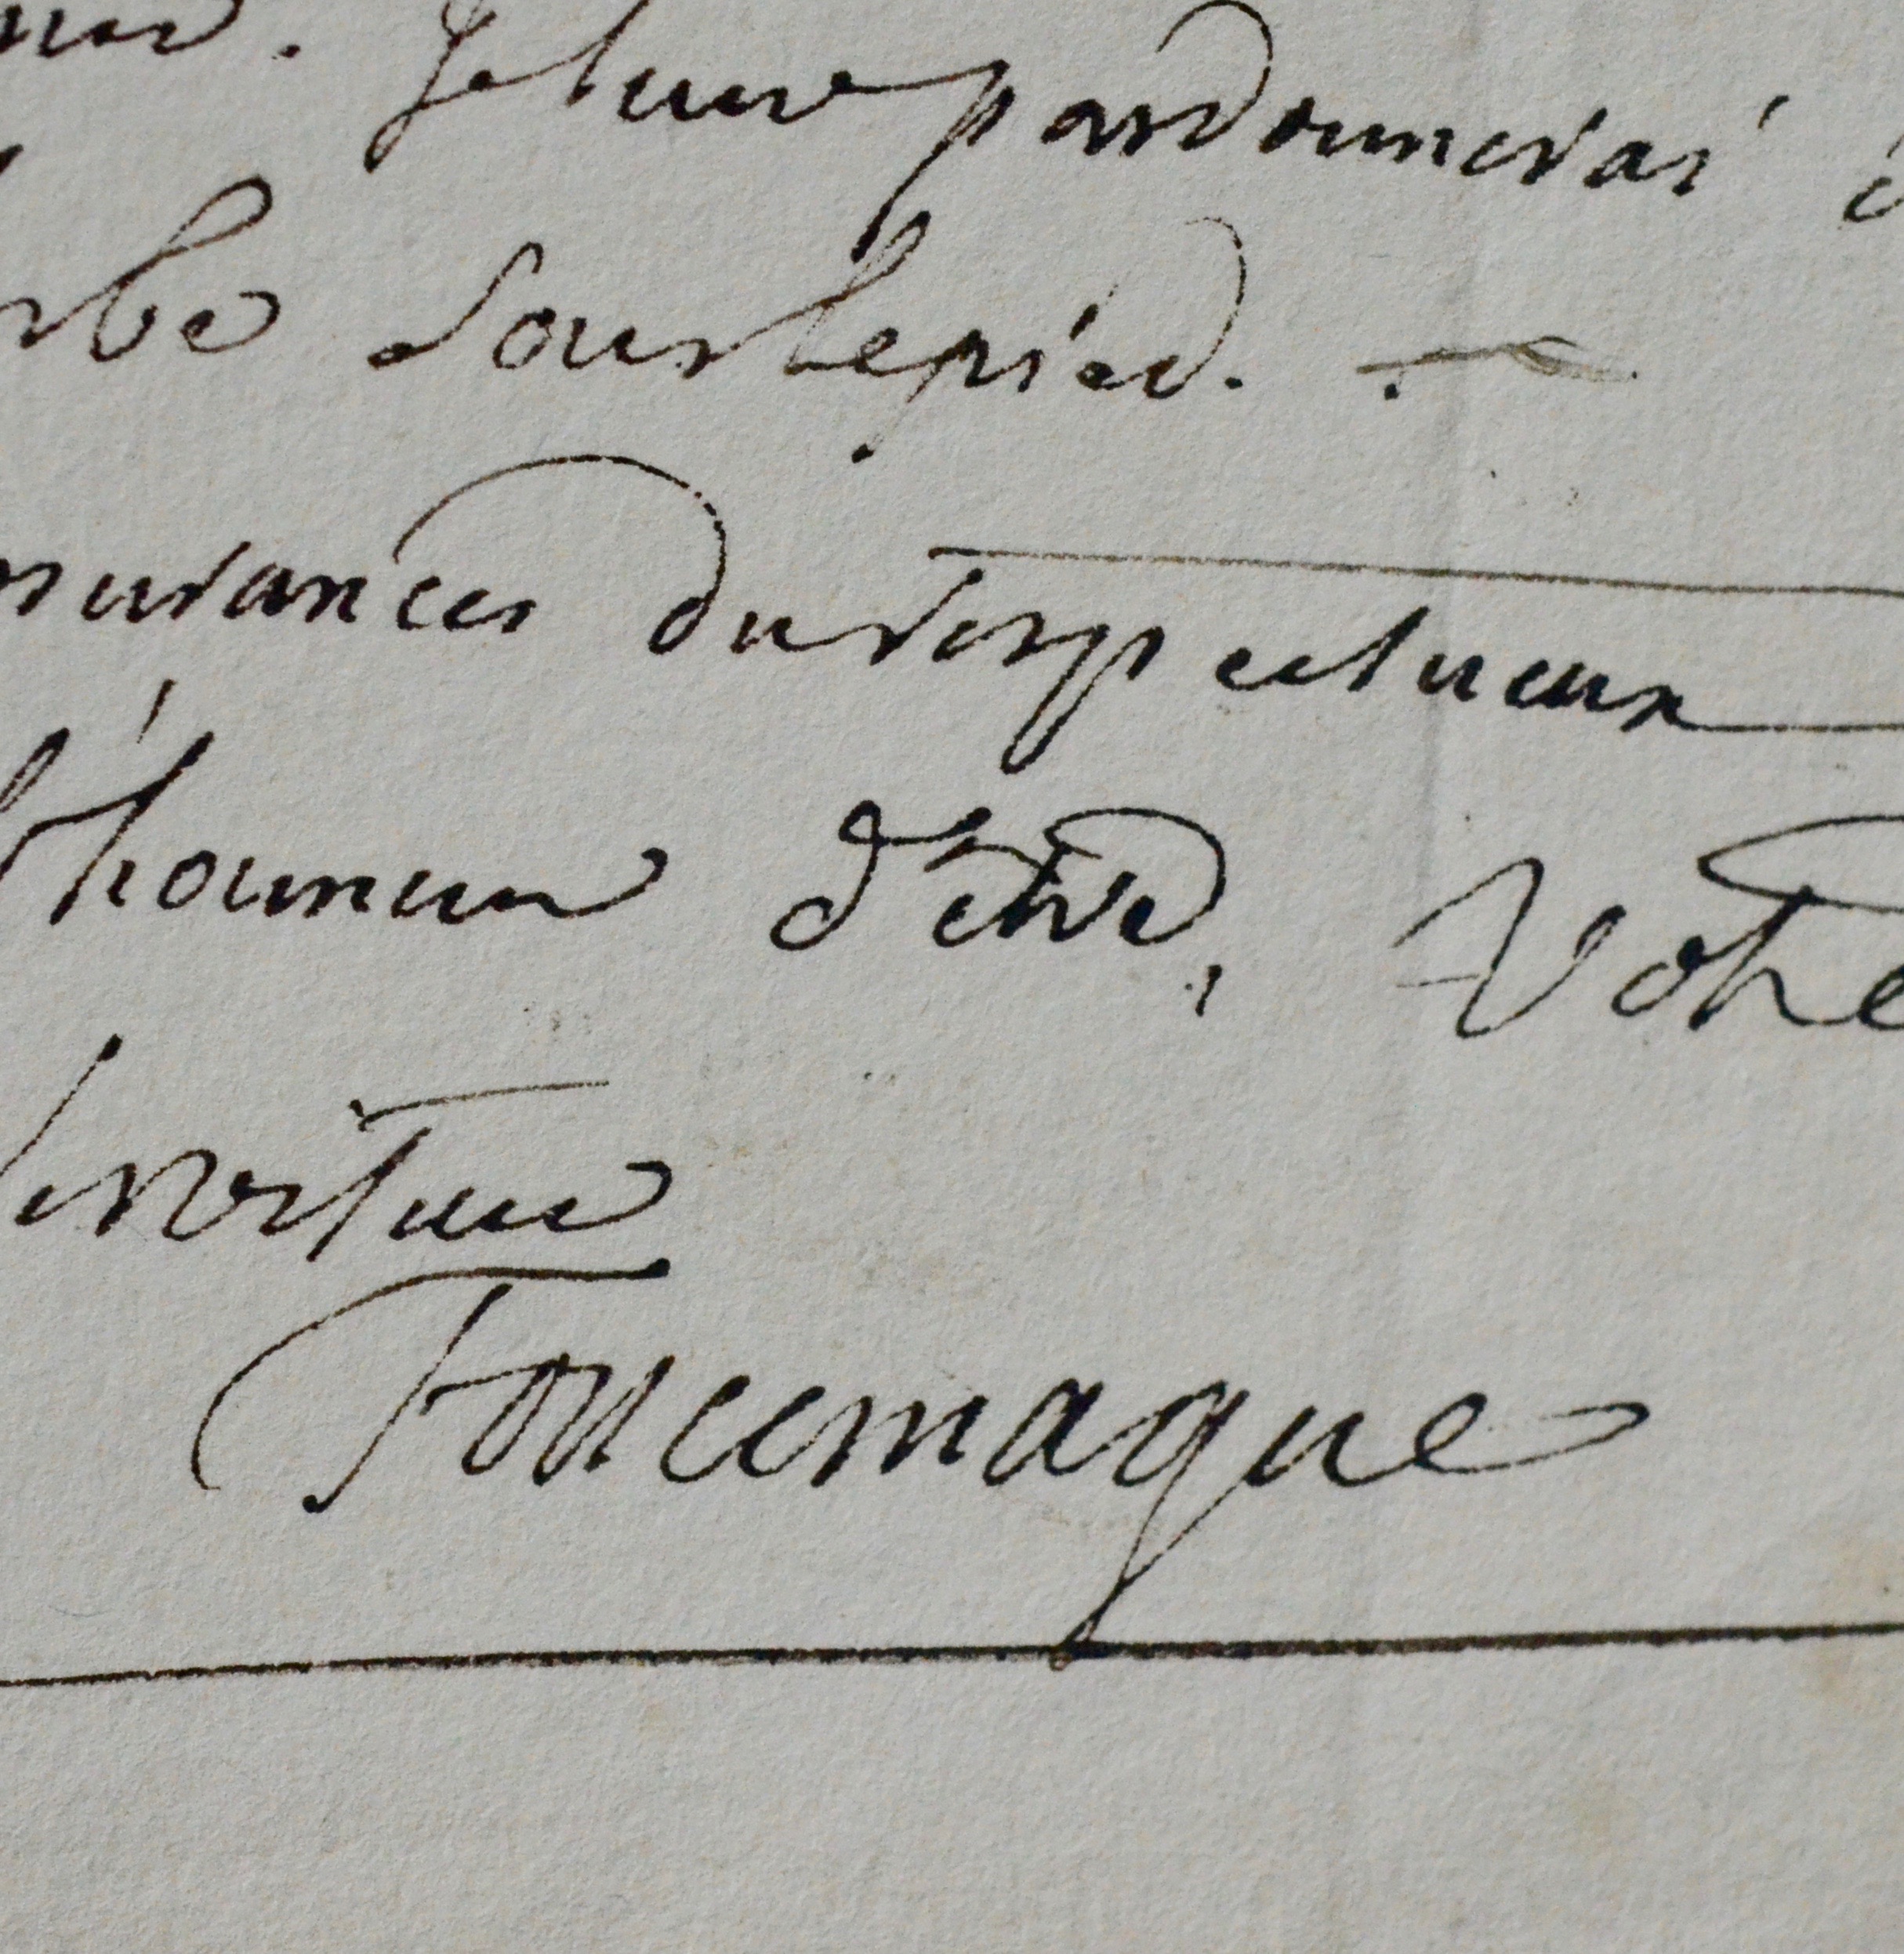 Je leur pardonnerai
sous le pied.
du respectueux
l'honneur d'être, Votre
serviteur
Foncemagne